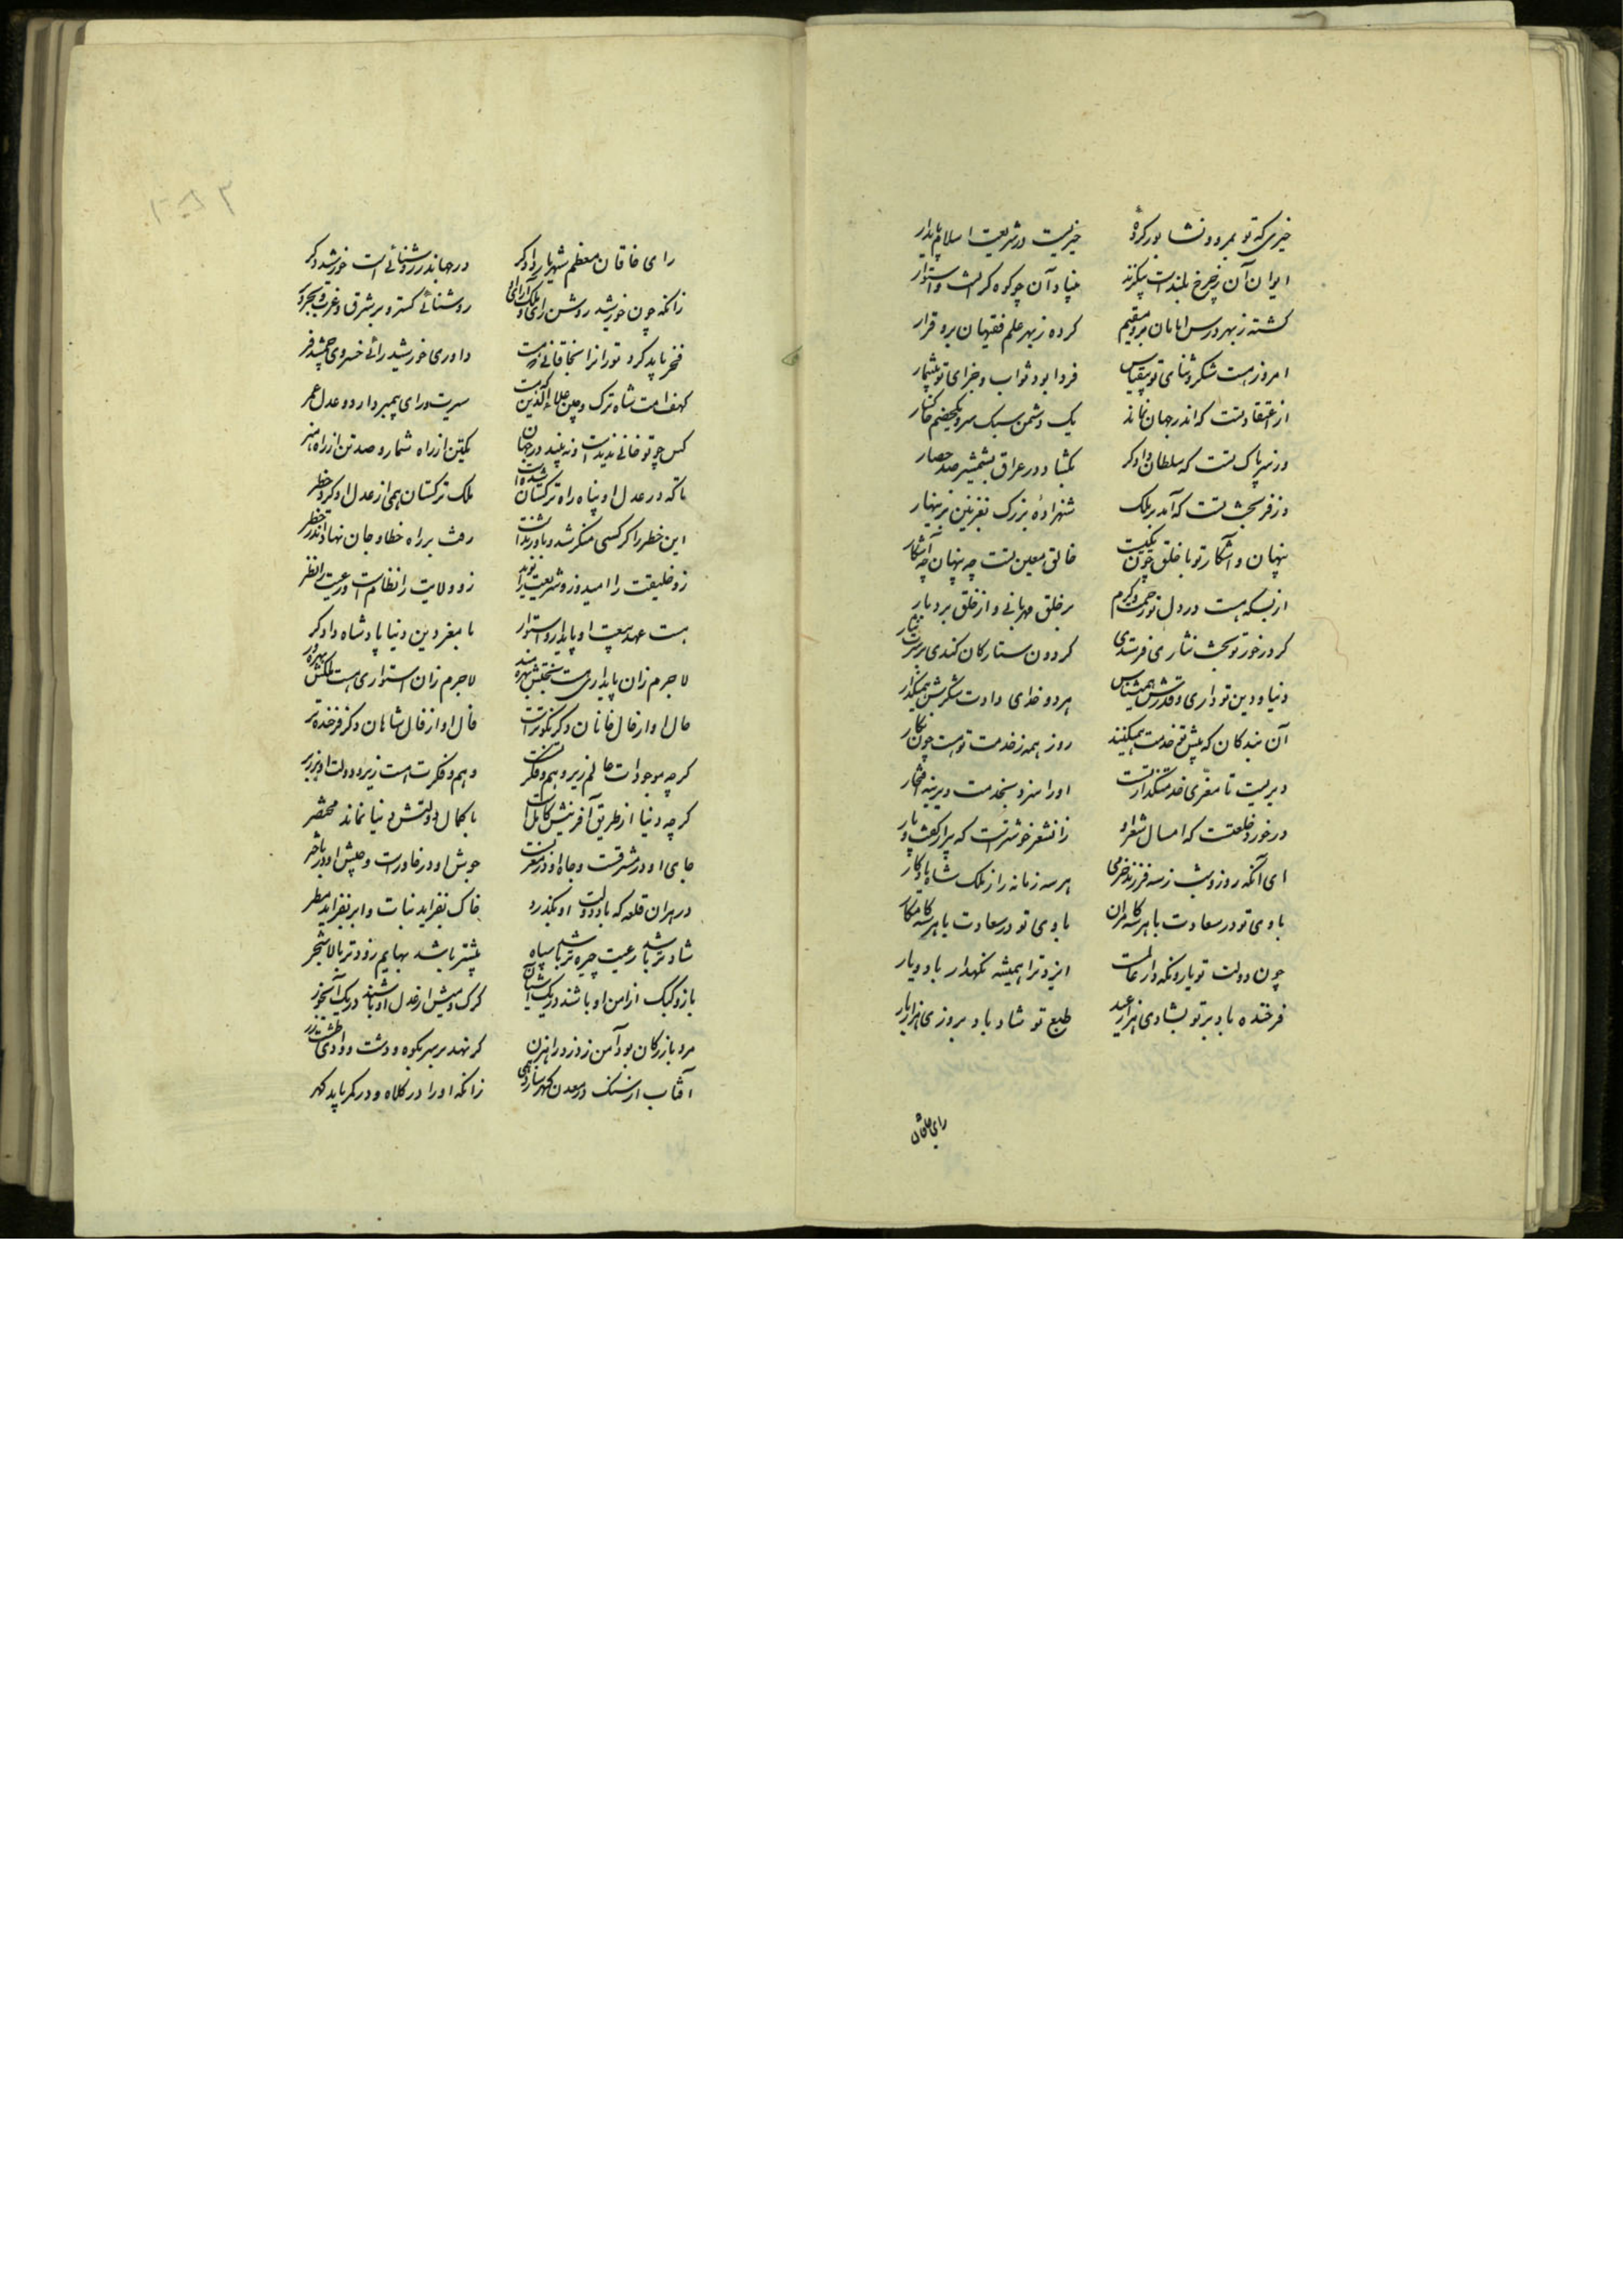 خیری که تو بمرو و نشابور کردهٔ    خیریست در شریعت اسلام پایدار
ایوان آن ز چرخ بلندست بیگزند    بنیاد آن چو کوه گرانست و استوار
گشته ز بهر درس امامان برو مقیم    کرده ز بهر علم فقیهان برو قرار
امروز هست شکر و ثنای تو بیقیاس    فردا بود ثواب و جزای تو بیشمار
از اعتقاد تست که اندر جهان نماند    یک دشمن سبک سر و یکخصم خاکسار
وز سر پاک تست که سلطان دادگر    بگشاد در عراق بشمشیر صد حصار
وز فر بخت تست که آمد بر ملک    شهزادهٔ بزرگ بغزنین بزینهار
پنهان و آشکار تو با خلق چون یکیست    خالق معین تست چه پنهان چه آشکار
از بسکه هست در دل تو رحمت و کرم    بر خلق مهربانی و از خلق بردبار
گر در خور تو بخت نثاری فرستدی    گردون ستارگان کندی بر سرت نثار
دنیا و دین تو داری و قدرش همیشناس    هر دو خدای دادت شکرش همیگذار
آن بندگان که پیش تو خدمت همیکنند    روز همه ز خدمت تو هست چون نگار
دیریست تا معزی خدمتگذار تست    او را سزد بخدمت دیرینه افتخار
در خورد خلعتست که امسال شعر او    زانشعر خوشترست که پیرار گفت و پار
ای آنکه روز و شب ز سه فرزند خرمی    هر سه زمانه را ز ملک شاه یادگار
بادی تو در سعادت با هر سه کامران    بادی تو در سعادت با هر سه کامکار
چون دولت تو یار و نگهدار عالمست    ایزد ترا همیشه نگهدار باد و یار
فرخنده باد بر تو بشادی هزار عید    طبع تو شاد باد بروزی هزار بار
رای خاقان
رای خاقان معظم شهریار دادگر    در جهانداری روشنائی است خورشید دگر
زانکه چون خورشید روشن رای ملک آرای او    روشنائی گسترد بر شرق و غرب و بحر و بر
فخر باید کرد توران را بخاقانی که هست    داوری خورشید رائی خسروی جمشید فر
کهف امت شاه ترک و چین علاء الدین که هست    سیرت و رای پیمبر دارد و عدل عمر
کس چو تو خانی ندیدست و نه بیند در جهان    یکتن از راه شمار و صد تن از راه هنر
تا که در عدل او پناه راه ترکستان شدست    ملک ترکستان همی از عدل او گیرد خطر
این خطر را گر کسی منکر شد و باور نداشت    رفت بر راه خطا و جان نهاد اندر خطر
زو خلیقت را امید و زو شریعت را نوید    زو ولایت را نظامست و رعیت را نظر
هست عهد بیعت او پایدار و استوار    با مغز دین دنیا پادشاه دادگر
لاجرم زان پایداری هست بختش بهره مند    لاجرم زان استواری هست ملکش بهره ور
حال او از حال خانان دگر نیکوترست    فال او از فال شاهان دگر فرخنده تر
گر چه موجودات عالم زیر وهم و فکرتست    وهم و فکرت هست زیر و دولت او بر زبر
گر چه دنیا از طریق آفرینش کاملست    با کمال دولتش دنیا نماند مختصر
جای او در مشرقست و جاه او در مغربست    جوش او در خاورست و جیش او در باختر
در هر آن قلعه که باد دولت او بگذرد    خاک نفزاید نبات و ابر نفزاید مطر
شادتر باشد رعیت چیره تر باشد سپاه    بیشتر باشد بهایم زودتر بالا شجر
باز و کبک از امن او باشند در یک آشیان    گرگ و میش از عدل او باشند در یک آبخور
مرد بازرگان بود آمن ز دزد و راهزن    گر نهد بر سر بکوه و دشت و وادی طشت زر
آفتاب از سنگ در معدن گهر سازد همی    زانکه او را در کلاه و در کمر باید گهر